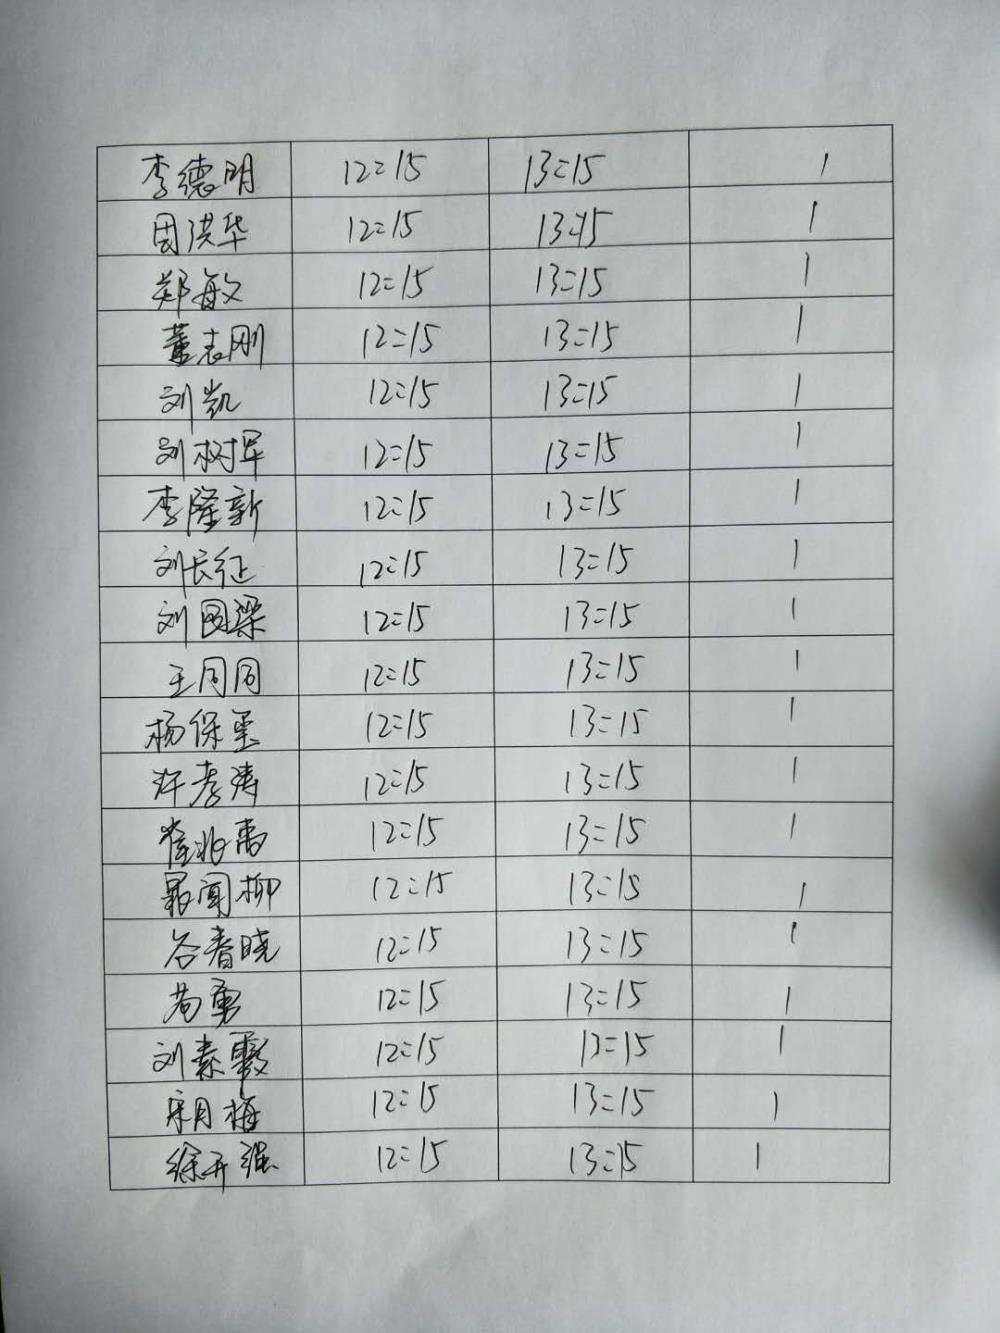 李德明 12:15 13:15 1
周洪华 12:15 13:15 1
郑敏 12:15 13:15 1
董志刚 12:15 13:15 1
刘凯 12:15 13:15 1
刘树军 12:15 13:15 1
李隆新 12:15 13:15 1
刘长征 12:15 13:15 1
刘国梁 12:15 13:15 1
王同同 12:15 13:15 1
杨保 12:15 13:15 1
许孝涛 12:15 13:15 1
崔兆禹 12:15 13:15 1
闻柳 12:15 13:15 1
谷春晓 12:15 13:15 1
苟勇 12:15 13:15 1
刘素霞 12:15 13:15 1
梅 12:15 13:15 1
徐开强 12:15 13:15 1